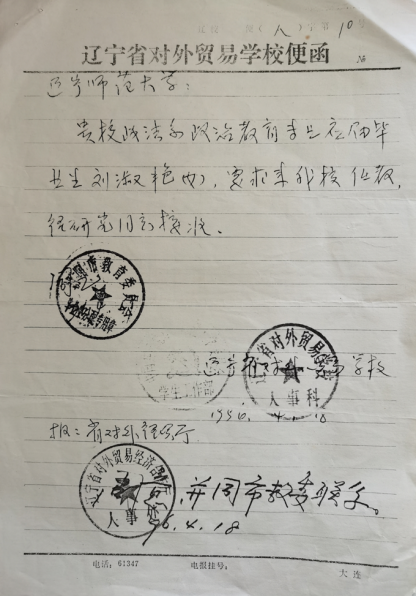 (人)字第10
辽宁省对外贸易学校便函
辽宁师范大学:
贵校政法系政治教育专业应届毕
业生刘淑艳(女),要求来我校任教,
经研究同意接收。
市教育委员会
辽宁省对外贸易学校
辽宁省对外贸易学校
人事科
学生工作部
1996.4.18
报:省对外经贸厅
辽宁省对外贸易经济合作厅
人事
并同市教委联系。
96.4.18
电话:61347 电报挂号: 大连